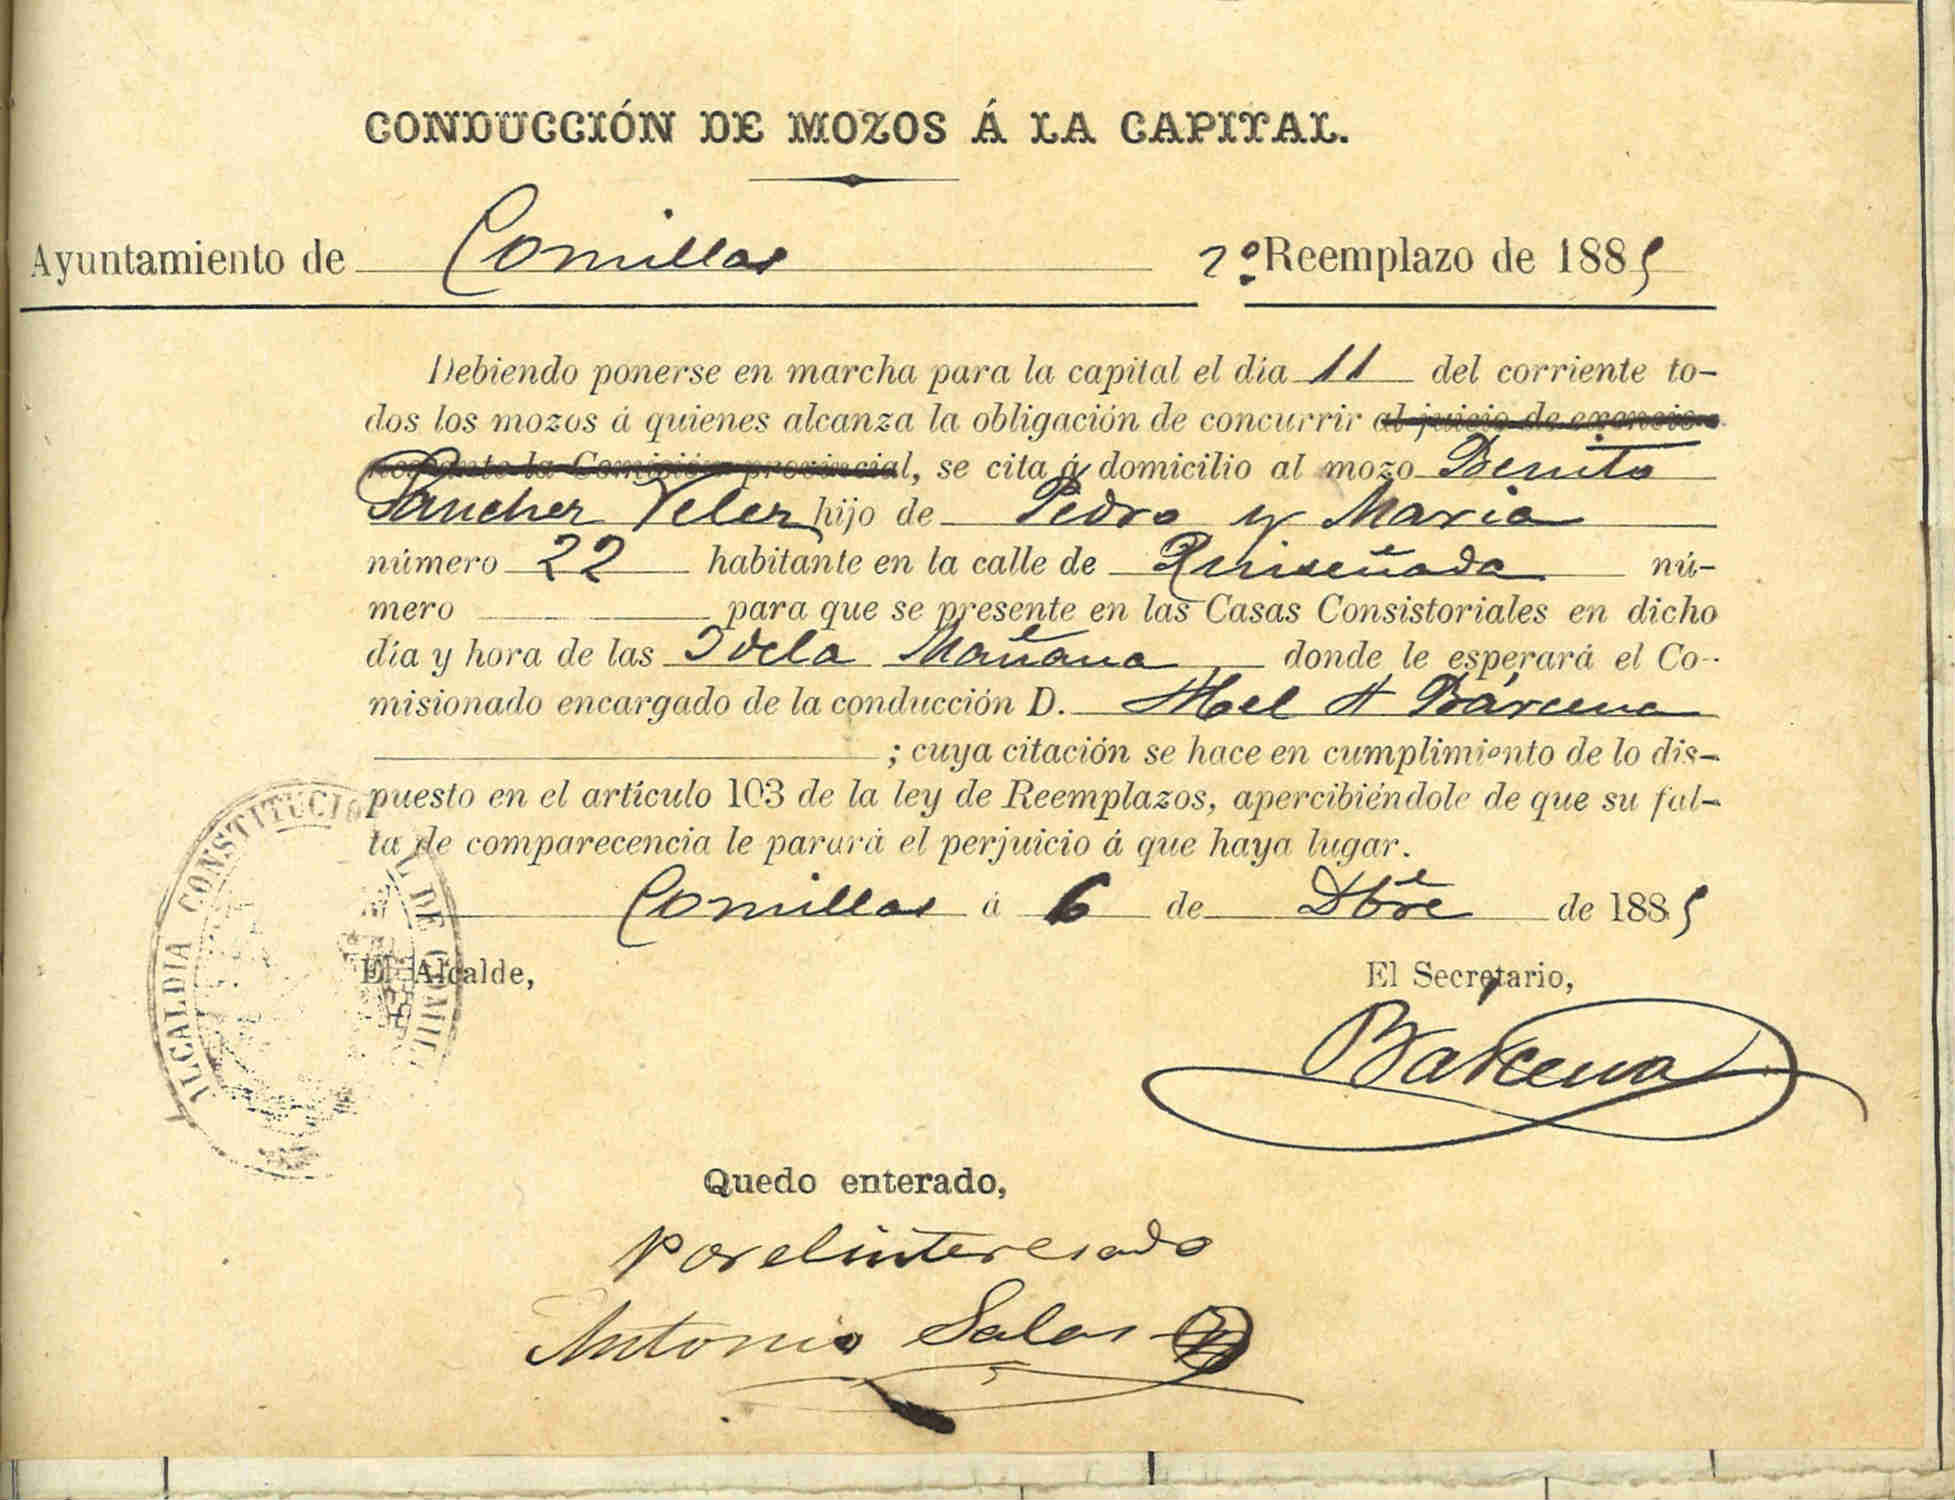 CONDUCCIÓN DE MOZOS Á LA CAPITAL.
Ayuntamiento de Comillas 2º Reemplazo de 1885
Debiendo ponerse en marcha para la capital el día 11 del corriente to-
dos los mozos á quienes alcanza la obligación de concurrir al juicio de exencio-
nes ante la Comisión provincial, se cita á domicilio al mozo Benito
Sanchez Velez hijo de Pedro y Maria
número 22 habitante en la calle de Ruiseñada nú-
mero para que se presente en las Casas Consistoriales en dicho
día y hora de las dela Mañana donde le esperará el Co-
misionado encargado de la conducción D. Bárcena
; cuya citación se hace en cumplimiento de lo dis-
puesto en el artículo 103 de la ley de Reemplazos, apercibiéndole de que su fal-
ta de comparecencia le parará el perjuicio á que haya lugar.
Comillas á 6 de Dbre de 1885
El Alcalde, El Secretario,
ALCALDIA CONSTITUCIONAL DE COMILLAS
Bárcena
Quedo enterado,
Por el interesado
Antonio Salas